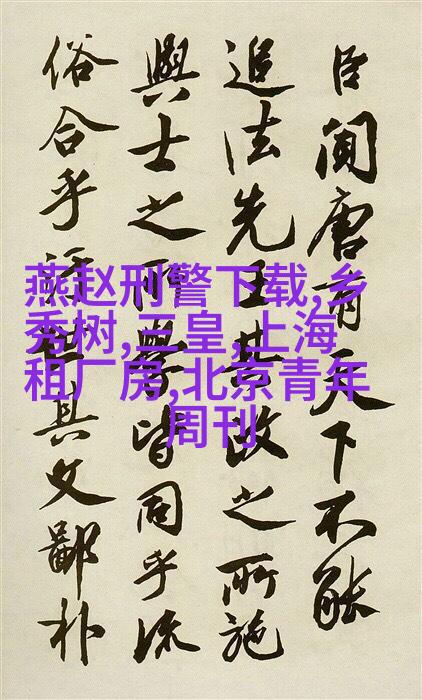 臣聞唐有天下不能
追法先王其政之所施
與士之所學皆同乎流
俗合乎其文鄙朴
燕赵刑警下载,乡
秀树,三皇,上海
租厂房,北京青年
周刊